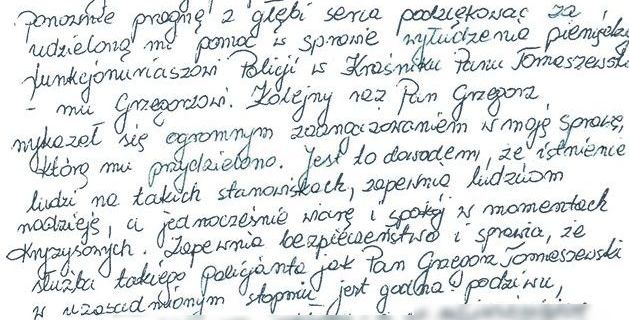 Ponownie pragnę z głębi serca podziękować za
udzieloną mi pomoc w sprawie wyłudzenia pieniędzy
funkcjonariuszowi Policji w Kraśniku Panu Tomaszewski
- mu Grzegorzowi. Kolejny raz Pan Grzegorz
wykazał się ogromnym zaangażowaniem w moją sprawę,
którą mu przydzielono. Jest to dowodem, że istnienie
ludzi na takich stanowiskach, zapewnia ludziom
nadzieję, a jednocześnie wiarę i spokój w momentach
kryzysowych. Zapewnia bezpieczeństwo i sprawia, że
służba takiego policjanta jak Pan Grzegorz Tomaszewski
w uzasadnionym stopniu jest godna podziwu,